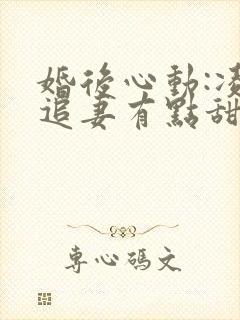 婚後心動:凌
追妻有點甜
專心碼文